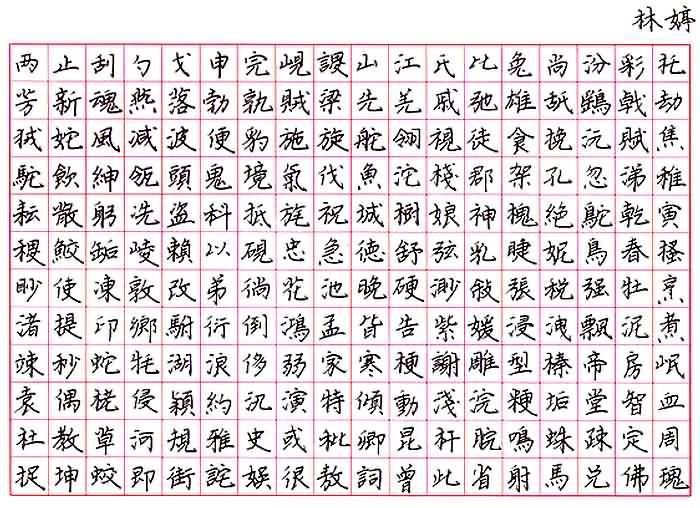 林婷
两止刮勺戈申完峴謖山江氏比兔尚汾彩托
芳新魂燕落勃孰賊梁先羌戚弛雄舐鷄戟劫
狨蛇風减波便豹施旋舵翎視徒食挽沅賦焦
駝飲紳瓴頭鬼境氣伐魚沱棧郡架孔忽涕稚
耘散躬冼盜科抵旄祝城樹娘神槐絶鴕乾寅
稷鮫缶崚賴以硯忠急德舒弦乳睫妮鳥春搔
眇使凍敦改弟徜花池晚硬渺敘張税强牡京
渚提印鄉駙衍倒鴻孟皆告紫媛浸洩飄泥煮
竦秒蛇牦湖浪侈弱家寒梗謝雕型榛帝房岷
袁偶毪侵穎約汎演特傾動淺浣粳垢堂智血
社教草河規雅史或秕卿昆杆脘鳴蛛疎定周
捉坤蛟即街詫娱很敖詞曾此省射馬兑佛瑰